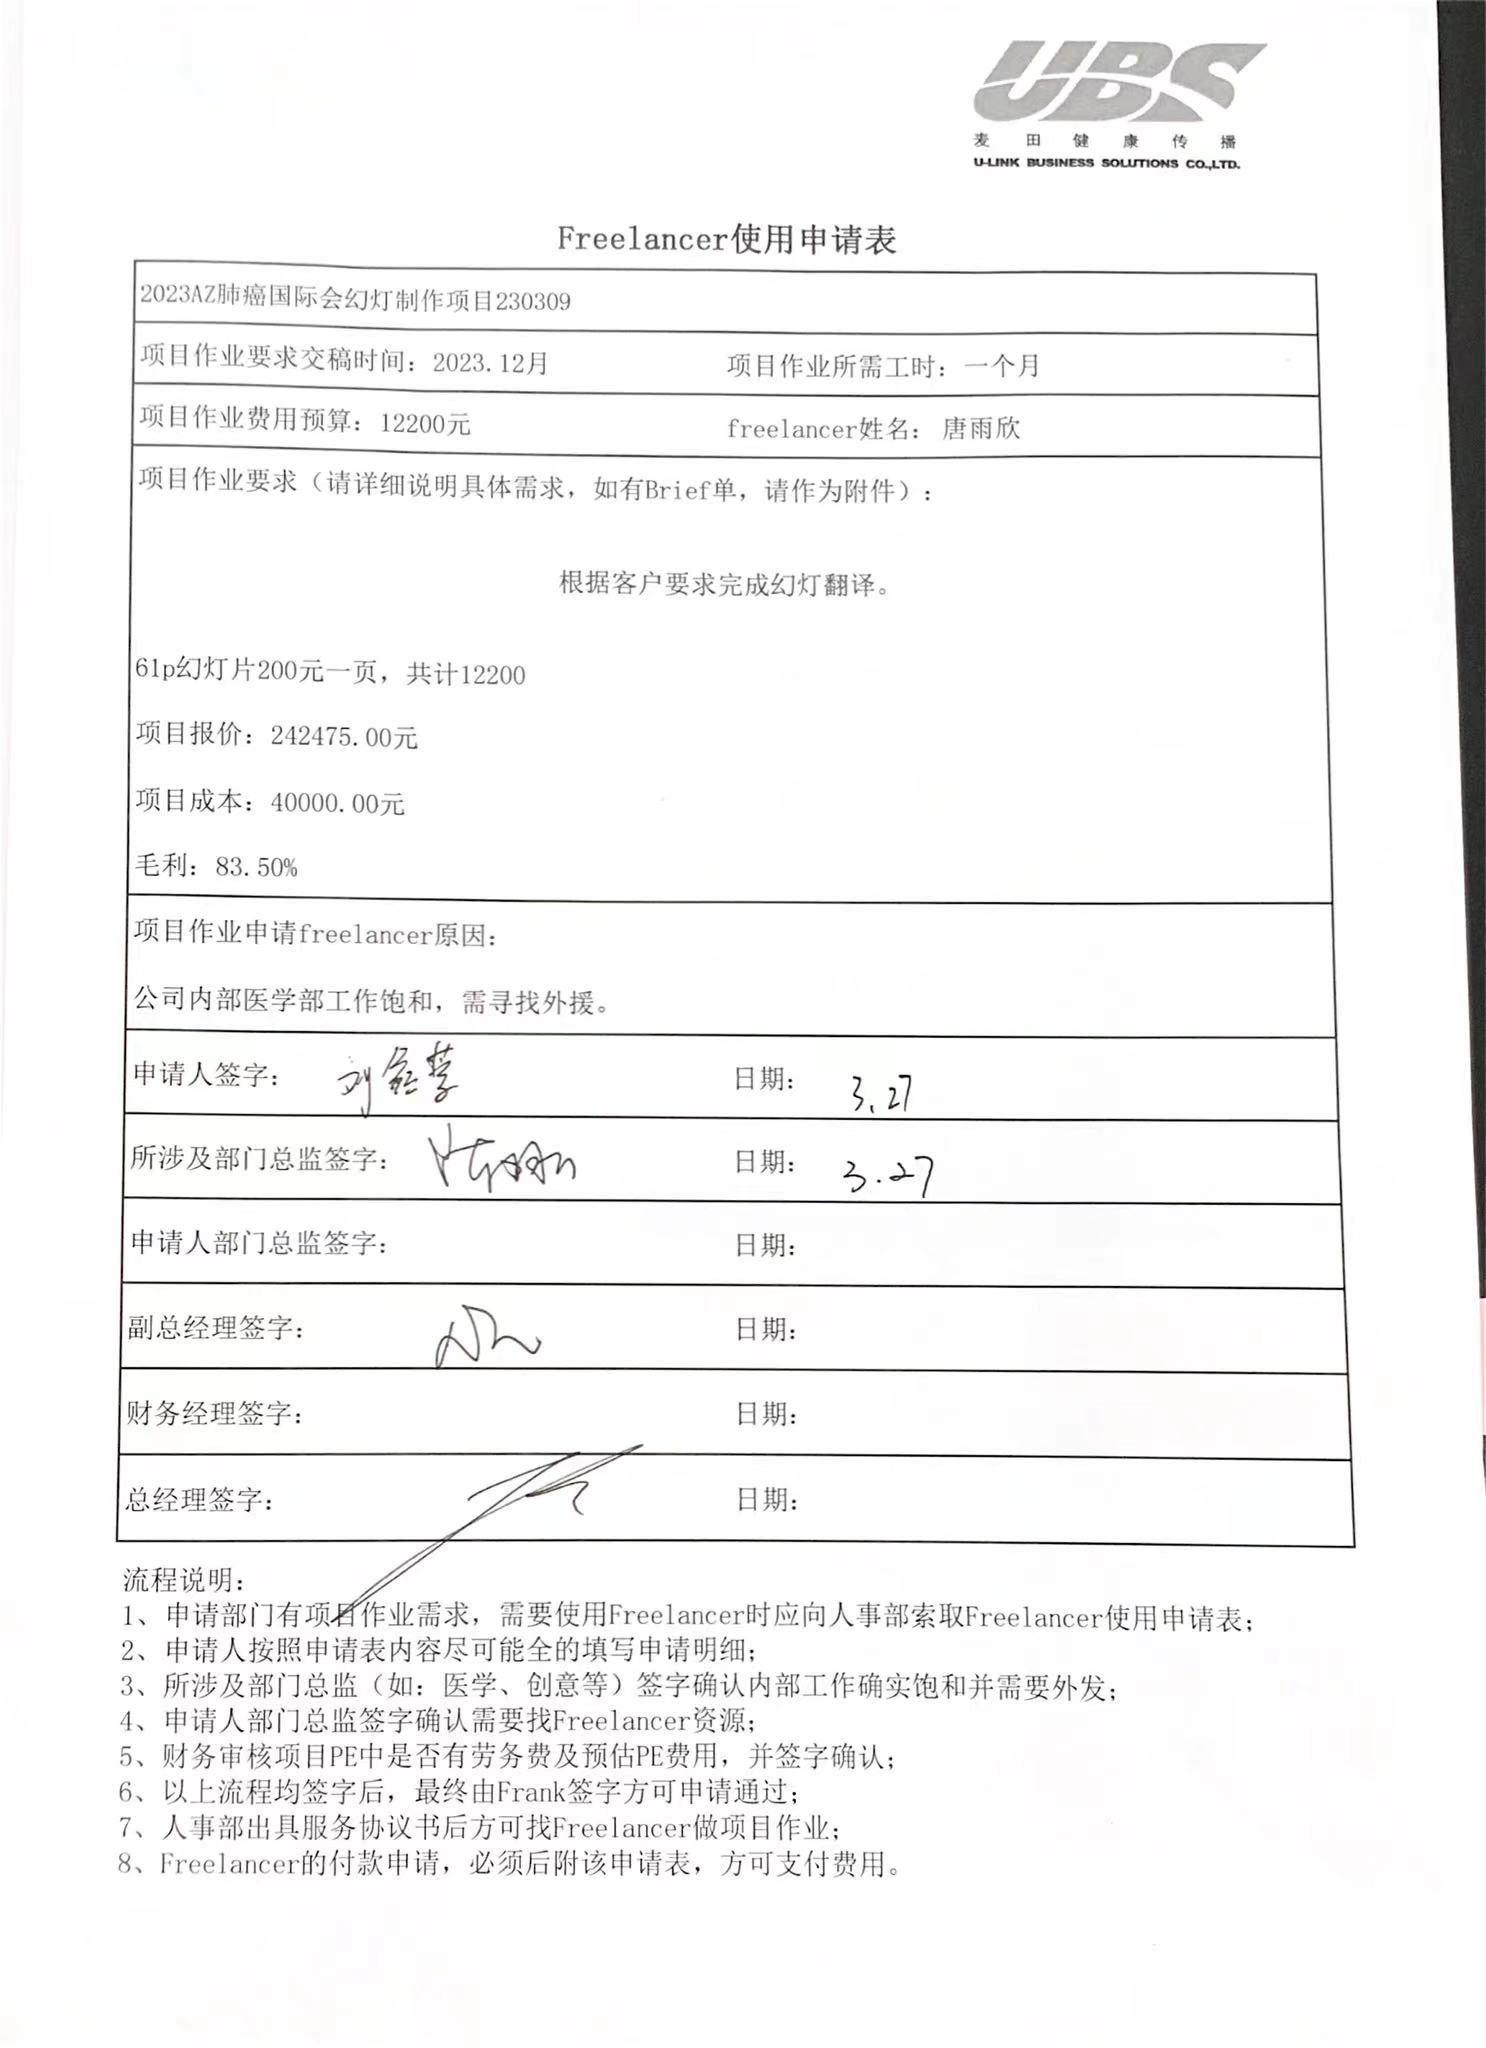 UBS
麦田健康传播
U-LINK BUSINESS SOLUTIONS CO.,LTD.
Freelancer使用申请表
2023AZ肺癌国际会幻灯制作项目230309
项目作业要求交稿时间：2023.12月 项目作业所需工时：一个月
项目作业费用预算：12200元 freelancer姓名：唐雨欣
项目作业要求（请详细说明具体需求，如有Brief单，请作为附件）：
根据客户要求完成幻灯翻译。
61p幻灯片200元一页，共计12200
项目报价：242475.00元
项目成本：40000.00元
毛利：83.50%
项目作业申请freelancer原因：
公司内部医学部工作饱和，需寻找外援。
申请人签字： 日期： 3.27
所涉及部门总监签字： 日期： 3.27
申请人部门总监签字： 日期：
副总经理签字： 日期：
财务经理签字： 日期：
总经理签字： 日期：
流程说明：
1、申请部门有项目作业需求，需要使用Freelancer时应向人事部索取Freelancer使用申请表；
2、申请人按照申请表内容尽可能全的填写申请明细；
3、所涉及部门总监（如：医学、创意等）签字确认内部工作确实饱和并需要外发；
4、申请人部门总监签字确认需要找Freelancer资源；
5、财务审核项目PE中是否有劳务费及预估PE费用，并签字确认；
6、以上流程均签字后，最终由Frank签字方可申请通过；
7、人事部出具服务协议书后方可找Freelancer做项目作业；
8、Freelancer的付款申请，必须后附该申请表，方可支付费用。